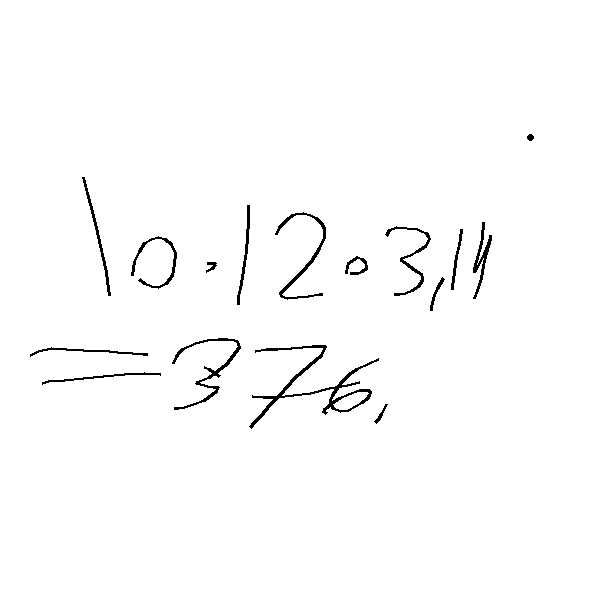 10·12·3,14
=376,